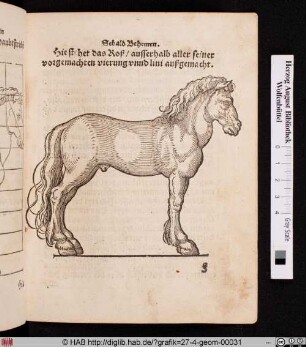 Sebald Behemen.
Hie stehet das Roß / ausserhalb aller seiner
vorgemachten vierung vnnd lini außgemacht.
Herzog August Bibliothek
Wolfenbüttel
Gray Scale
© HAB http://diglib.hab.de/?grafik=27-4-geom-00031